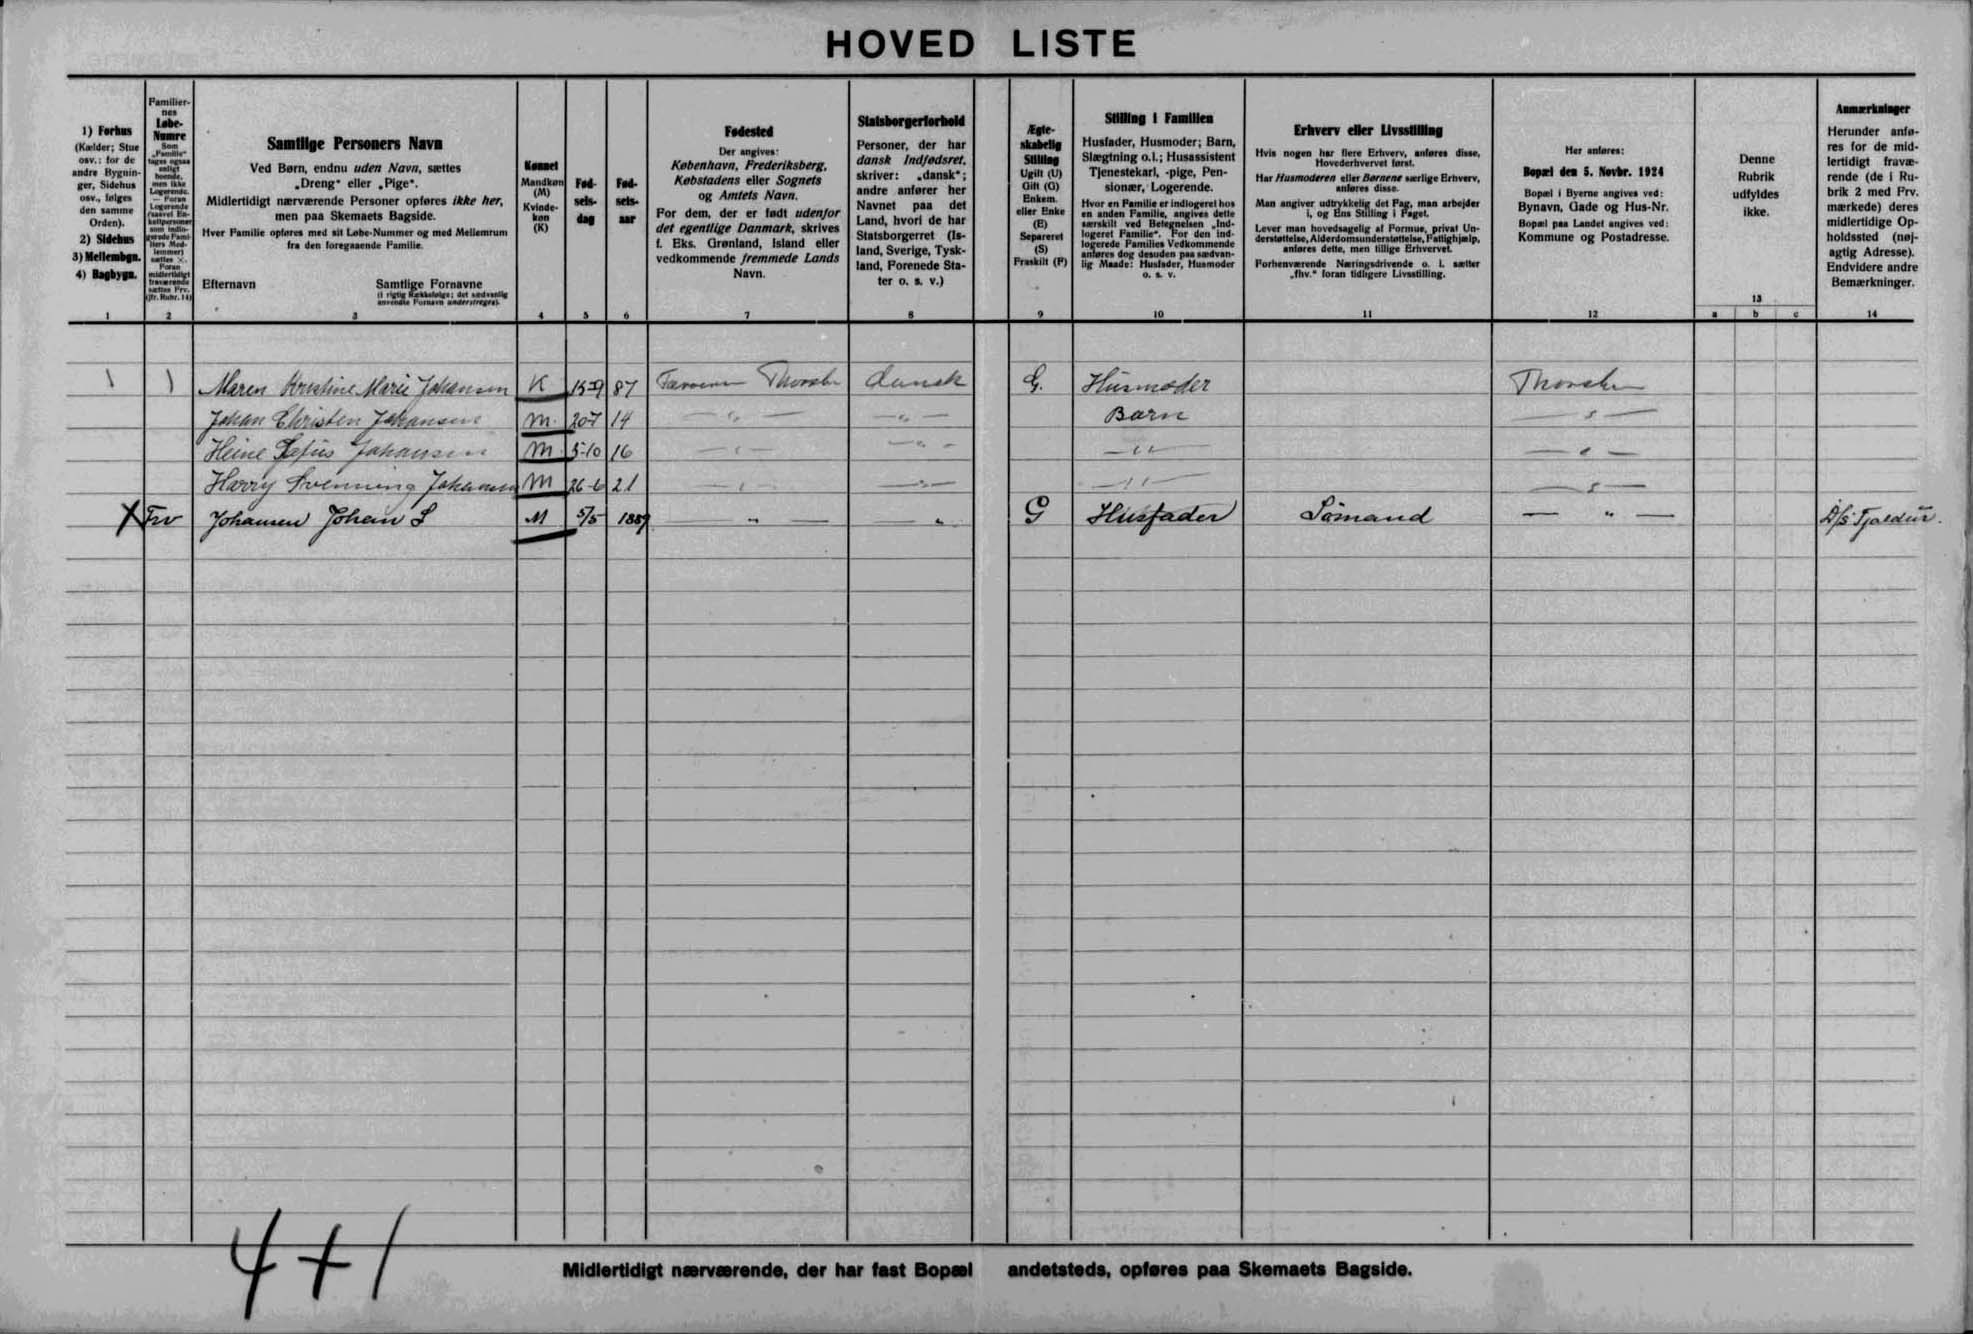 HOVED LISTE
1) Forhus
(Kælder; Stue
osv.; for de
andre Bygnin-
ger, Sidehus
osv., følges
den samme
Orden).
2) Sidehus
3) Mellembgn.
4) Bagbygn.
1
Familier-
nes
Løbe-
Numre
Som
„Familie"
tages ogsaa
enligt
boende,
men ikke
Logerende.
— Foran
Logerende
(saavel En-
keltpersoner
som indlo-
gerede Fami-
liers Med-
lemmer)
sættes ×.
Foran
midlertidigt
fraværende
sættes Frv.
(jfr. Rubr. 14)
2
Samtlige Personers Navn
Ved Børn, endnu uden Navn, sættes
„Dreng" eller „Pige".
Midlertidigt nærværende Personer opføres ikke her,
men paa Skemaets Bagside.
Hver Familie opføres med sit Løbe-Nummer og med Mellemrum
fra den foregaaende Familie.
Efternavn Samtlige Fornavne
(i rigtig Rækkefølge; det sædvanlig
anvendte Fornavn understreges).
3
Kønnet
Mandkøn
(M)
Kvinde-
køn
(K)
4
Fød-
sels-
dag
5
Fød-
sels-
aar
6
Fødested
Der angives:
København, Frederiksberg,
Købstadens eller Sognets
og Amtets Navn.
For dem, der er født udenfor
det egentlige Danmark, skrives
f. Eks. Grønland, Island eller
vedkommende fremmede Lands
Navn.
7
Statsborgerforhold
Personer, der har
dansk Indfødsret,
skriver: „dansk";
andre anfører her
Navnet paa det
Land, hvori de har
Statsborgerret (Is-
land, Sverige, Tysk-
land, Forenede Sta-
ter o. s. v.)
8
Ægte-
skabelig
Stilling
Ugift (U)
Gift (G)
Enkem.
eller Enke
(E)
Separeret
(S)
Fraskilt (F)
9
Stilling i Familien
Husfader, Husmoder; Barn,
Slægtning o.l.; Husassistent
Tjenestekarl, -pige, Pen-
sionær, Logerende.
Hvor en Familie er indlogeret hos
en anden Familie, angives dette
særskilt ved Betegnelsen „Ind-
logeret Familie". For den ind-
logerede Families Vedkommende
anføres dog desuden paa sædvan-
lig Maade: Husfader, Husmoder
o. s. v.
10
Erhverv eller Livsstilling
Hvis nogen har flere Erhverv, anføres disse,
Hovederhvervet først.
Har Husmoderen eller Børnene særlige Erhverv,
anføres disse.
Man angiver udtrykkelig det Fag, man arbejder
i, og Ens Stilling i Faget.
Lever man hovedsagelig af Formue, privat Un-
derstøttelse, Alderdomsunderstøttelse, Fattighjælp,
anføres dette, men tillige Erhvervet.
Forhenværende Næringsdrivende o. l. sætter
„fhv." foran tidligere Livsstilling.
11
Her anføres:
Bopæl den 5. Novbr. 1924
Bopæl i Byerne angives ved:
Bynavn, Gade og Hus-Nr.
Bopæl paa Landet angives ved:
Kommune og Postadresse.
12
Denne
Rubrik
udfyldes
ikke.
13
a b c
Anmærkninger
Herunder anfø-
res for de mid-
lertidigt fravæ-
rende (de i Ru-
brik 2 med Frv.
mærkede) deres
midlertidige Op-
holdssted (nøj-
agtig Adresse).
Endvidere andre
Bemærkninger.
14
1 1 Maren Kristine Marie Johansen K 15-9 87 dansk G. Husmoder
Johan Christen Johansen M. 20-7 14 — „ — — „ — Barn — „ —
Heine Johansen M. 5-10 16 — „ — — „ — — „ — — „ —
Harry Svenning Johansen M 26-6 21 — „ — — „ — — „ — — „ —
X Frv Johansen Johan S M 5/5 1889 — „ — „ G Husfader Sømand — „ — D/S Tjaldur.
4+1
Midlertidigt nærværende, der har fast Bopæl andetsteds, opføres paa Skemaets Bagside.